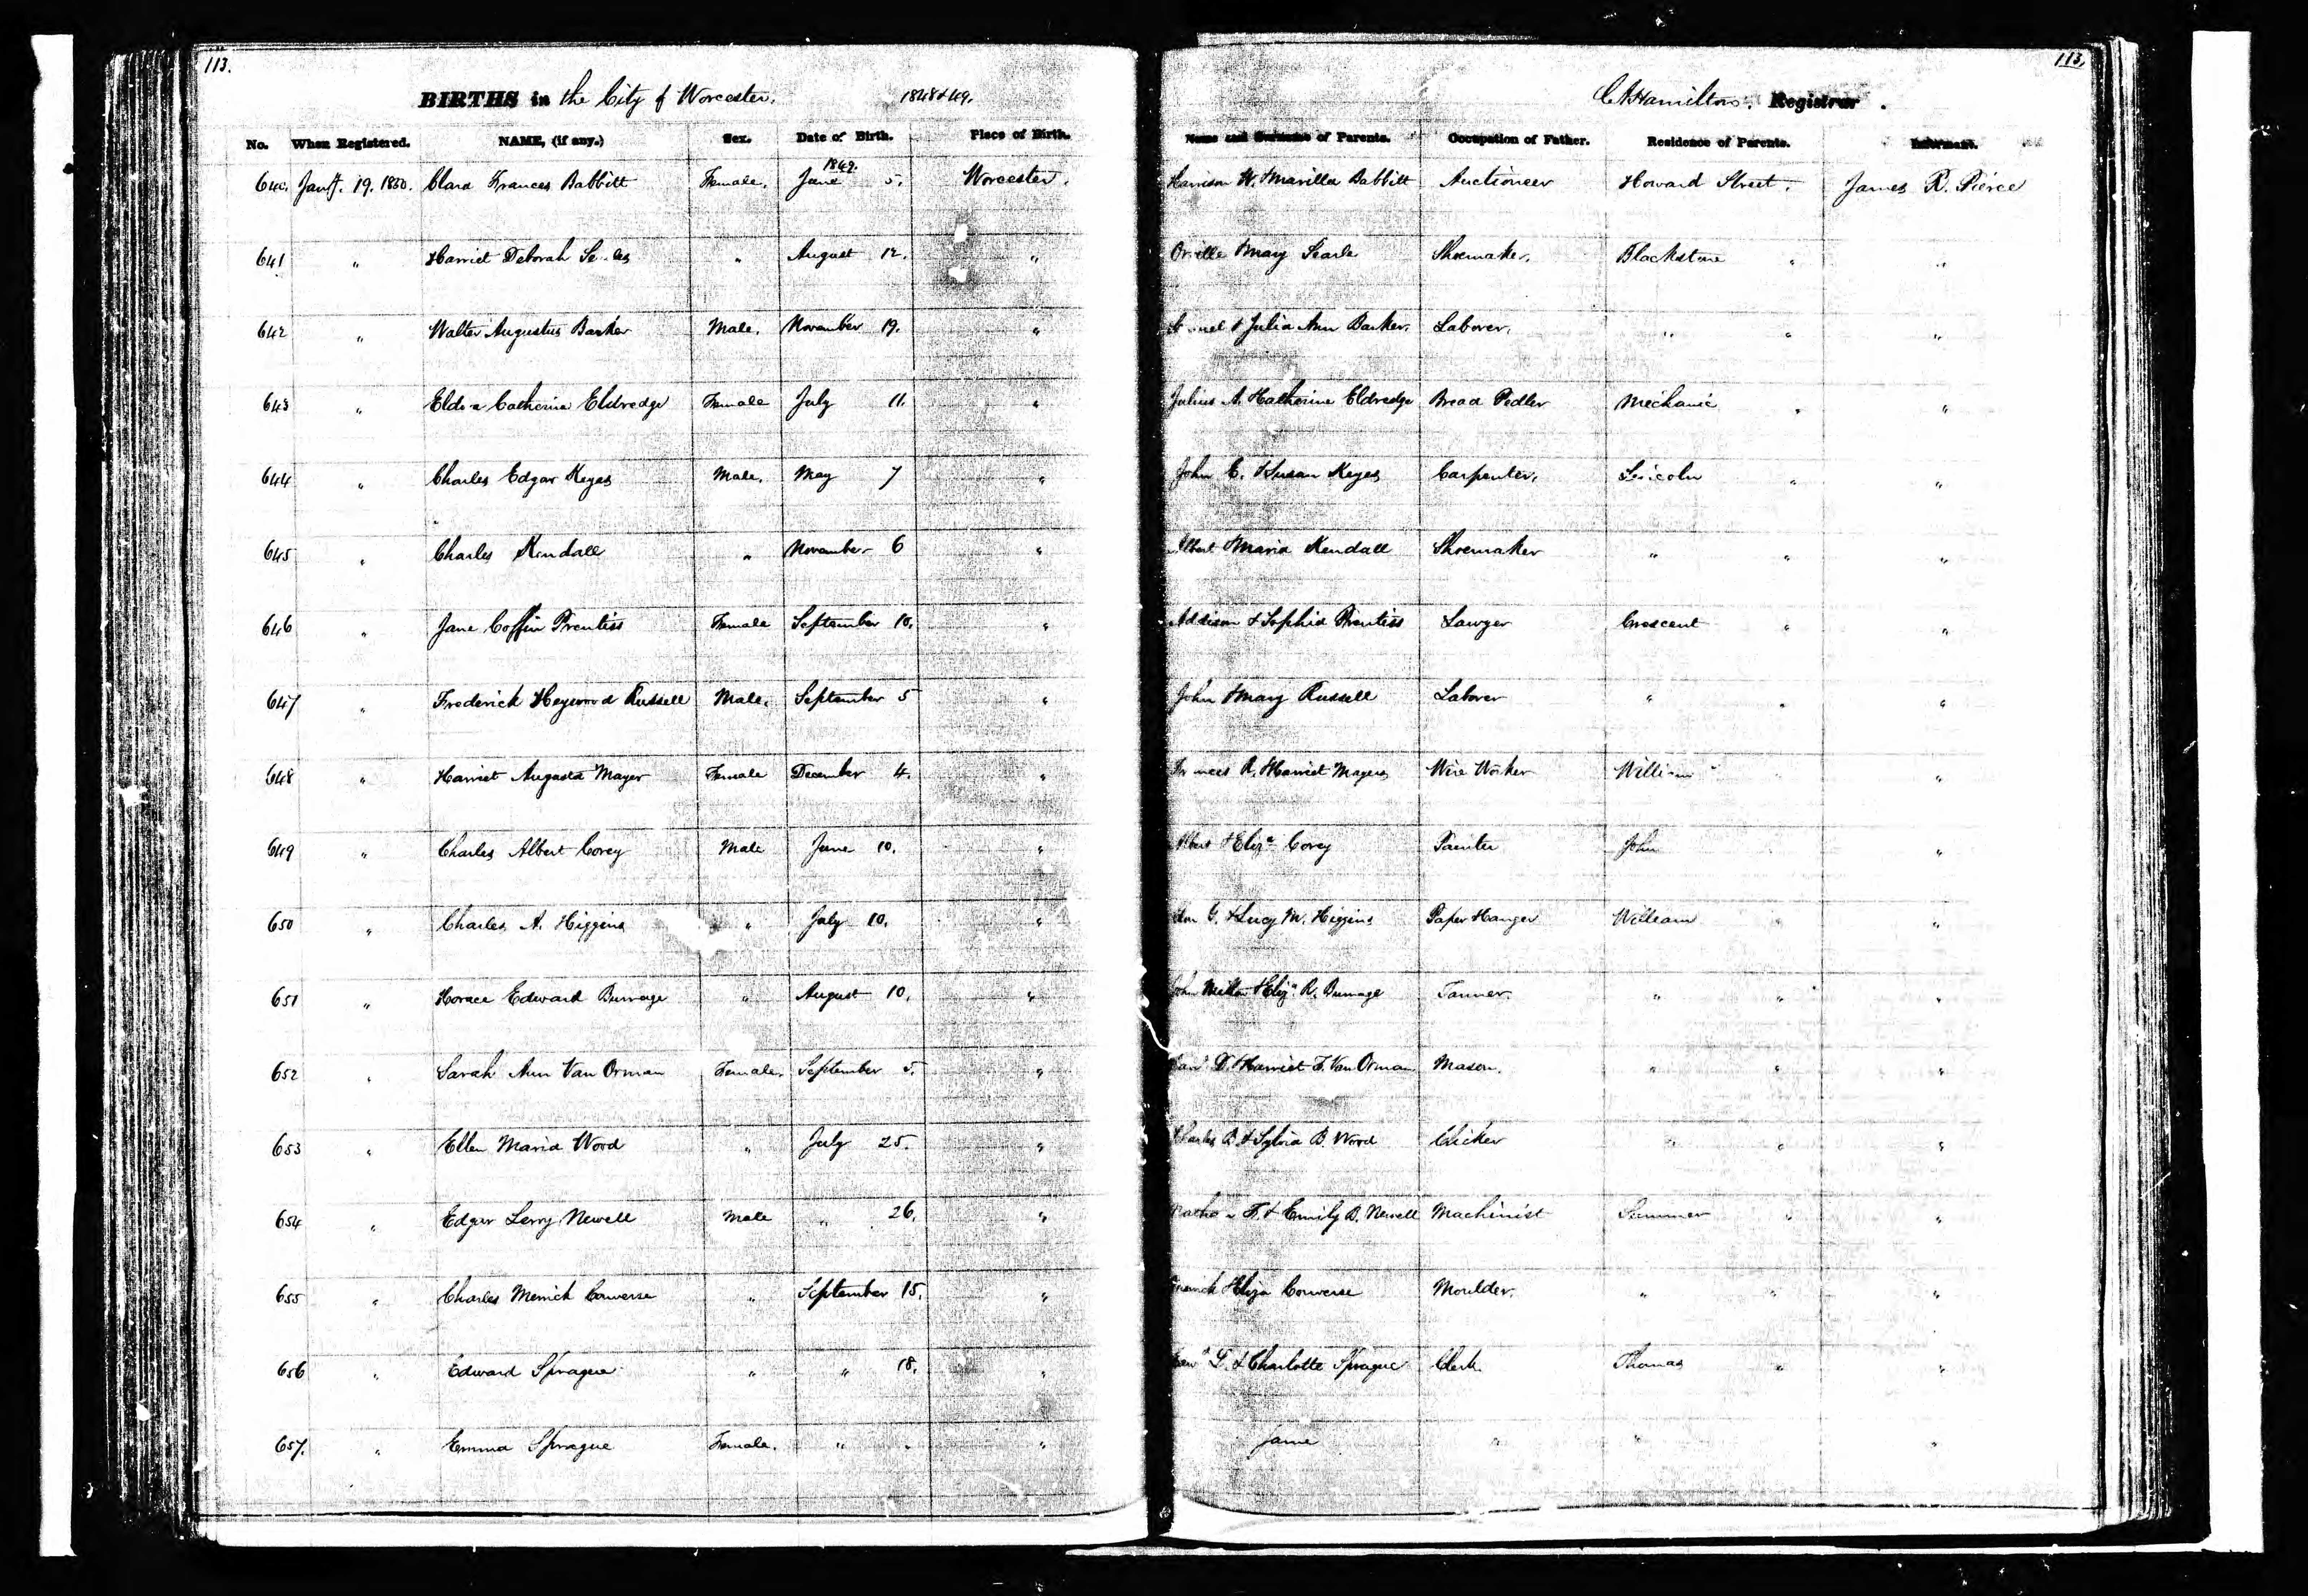 113. 113.
BIRTHS in the City of Worcester. 1848 & 49. C A Hamilton. Registrar.
No. When Registered. NAME, (if any.) Sex. Date of Birth. Place of Birth. Name and Surname of Parents. Occupation of Father. Residence of Parents. Informant.
1849.
640. Jany. 19. 1850. Clara Frances Babbitt Female. June 5. Worcester. Harrison W. & Marilla Babbitt Auctioneer Howard Street. James R. Pierce
641 " Harriet Deborah " August 12. " Orville & Mary Searle Shoemaker. Blackstone " "
642 " Walter Augustus Barker Male. November 19. " & Julia Ann Barker. Laborer. " " "
643 " Catherine Eldredge Female July 11. " Julius A. & Catherine Eldredge Bread Pedler Mechanic " "
644 " Charles Edgar Keyes Male. May 7 " John C. & Susan Keyes Carpenter. Lincoln " "
645 " Charles Kendall " November 6 " Albert & Maria Kendall Shoemaker " " "
646 " Jane Coffin Prentiss Female September 10. " Addison & Sophia Prentiss Lawyer Crescent " "
647 " Frederick Heywood Russell Male. September 5 " John & Mary Russell Laborer " " "
648 " Harriet Augusta Mayer Female December 4. " R. & Harriet Mayers Wire Worker William " "
649 " Charles Albert Corey Male June 10. " Albert & Eliza Corey Painter John "
650 " Charles A. Higgins " July 10. " & Lucy M. Higgins Paper Hanger William " "
651 " Horace Edward Burrage " August 10. " John Milton & Eliza R. Burrage Tanner. " " "
652 " Sarah Ann Van Orman Female. September 5. " D. & Harriet F. Van Orman Mason. " " "
653 " Ellen Maria Wood " July 25. " Charles B. & Sylvia B. Wood Clicker " " "
654 " Edgar Newell Male " 26. " F. & Emily B. Newell Machinist Summer " "
655 " Charles Merrick Converse " September 15. " Merrick & Eliza Converse Moulder. " " "
656 " Edward Sprague " " 18. " & Charlotte Sprague Clerk Thomas " "
657. " Emma Sprague Female. " " " Same " " "